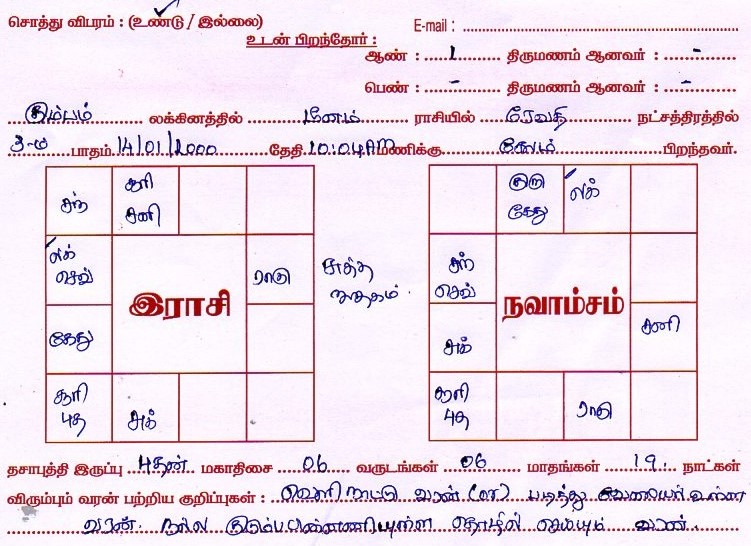 சொத்து விபரம் : (உண்டு / இல்லை) E-mail :
உடன் பிறந்தோர் :
ஆண் : 1 திருமணம் ஆனவர் : -
பெண் : - திருமணம் ஆனவர் : -
கும்பம் லக்கினத்தில் மீனம் ராசியில் ரேவதி நட்சத்திரத்தில்
3-ம் பாதம் 14/01/2000 தேதி 10:04AM மணிக்கு சேலம் பிறந்தவர்.
சந் குரு
சனி
ல/
செவ்
ராகு
சுத்த
ஜாதகம்.
கேது
இராசி
சூரி
புத சுக்
குரு
கேது
ல/
சந்
செவ்
நவாம்சம்
சுக்
சனி
சூரி
புத ராகு
தசாபுத்தி இருப்பு புதன் மகாதிசை 06 வருடங்கள் 06 மாதங்கள் 19 நாட்கள்
விரும்பும் வரன் பற்றிய குறிப்புகள் : வெளிநாட்டு வரன் (or) படித்து வேலையில் உள்ள
வரன். நல்ல குடும்ப பின்னணியுள்ள தொழில் செய்யும் வரன்.